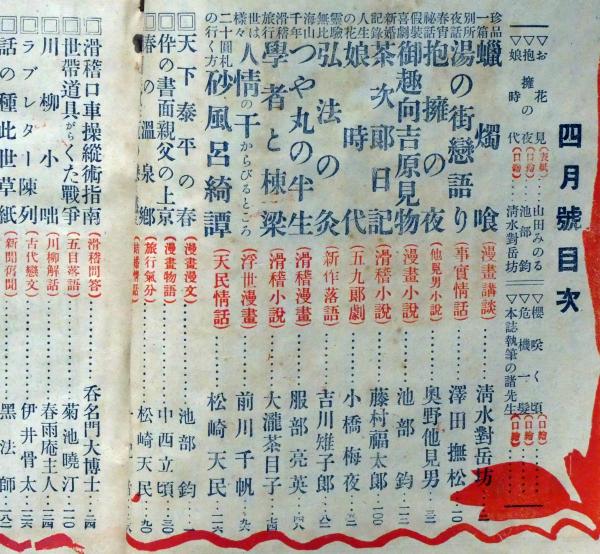 四月號目次
▽お花見(表紙)……山田みのる
▽抱擁の夜(口繪)……池部鈞
▽娘時代(口繪)……清水對岳坊
▽櫻咲く頃(口繪)
▽危機一髮(口繪)
▽本誌執筆の諸先生
珍品一箱 蠟燭喰(漫畫講談)……清水對岳坊
別所夜話 湯の街戀語り(事實情話)……澤田撫松…二〇
春宵秘話 抱擁の夜(他見男小說)……奥野他見男
假裝喜劇 御趣向吉原見物(漫畫小說)……池部鈞
新婚記錄 茶次郎日記(滑稽小說)……藤村福太郎…一〇〇
人生の花 娘時代(五九郎劇)……小橋梅夜
靈驗無比 弘法の灸(新作落語)……吉川雉子郎
海山千年 つや丸の半生(滑稽漫畫)……服部亮英…四八
滑稽旅行 學者と棟梁(滑稽小說)……大瀧茶目子…七四
世は樣々 人情の干からびるところ(浮世漫畫)……前川千帆…九六
二十圓札の行く方 砂風呂綺譚(天民情話)……松崎天民…二六
□天下泰平の春(漫畫漫文)……池部鈞…一
□伜の書面親父の上京(漫畫物語)……中西立頃…三〇
□春の溫泉鄉(旅行氣分)……松崎天民…九〇
□滑稽口車操縱術指南(滑稽問答)……呑名門大博士…三四
□世帶道具がらくた戰爭(五目落語)……菊池曉汀…二〇
□川柳小咄(川柳解話)……春雨庵主人…二四
□ラブレター陳列(古代戀文)……伊井骨太…三六
話の種此世草紙(新聞舊聞)……黑法師…一八二